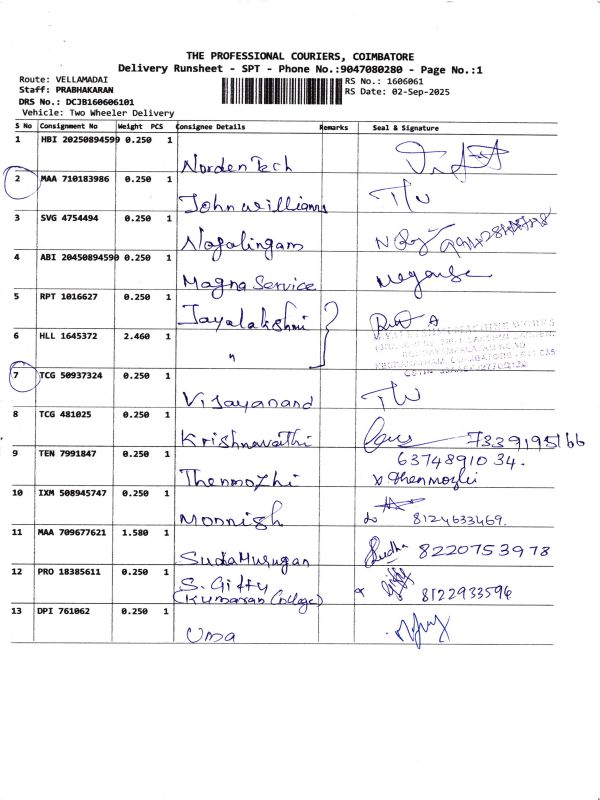 THE PROFESSIONAL COURIERS, COIMBATORE
Delivery Runsheet - SPT - Phone No.:9047080280 - Page No.:1
Route: VELLAMADAI
RS No.: 1606061
Staff: PRABHAKARAN
RS Date: 02-Sep-2025
DRS No.: DCJB160606101
Vehicle: Two Wheeler Delivery
S No Consignment No Weight PCS Consignee Details Remarks Seal & Signature
1 HBI 20250894599 0.250 1 Norden Tech
2 MAA 710183986 0.250 1 John williams
3 SVG 4754494 0.250 1 Nagalingam
4 ABI 20450894590 0.250 1 Magna Service
5 RPT 1016627 0.250 1 Jayalakshmi
6 HLL 1645372 2.460 1 "
7 TCG 50937324 0.250 1 Vijayanand
8 TCG 481025 0.250 1 Krishnavathi 7339195166
9 TEN 7991847 0.250 1 Thenmozhi 6374891034.
Thenmozhi
10 IXM 508945747 0.250 1 Monnish 8124633469.
11 MAA 709677621 1.580 1 SudaMurugan Sudha 8220753978
12 PRO 18385611 0.250 1 S. Giffy
(Kumaran College) 8122933594
13 DPI 761062 0.250 1 Uma